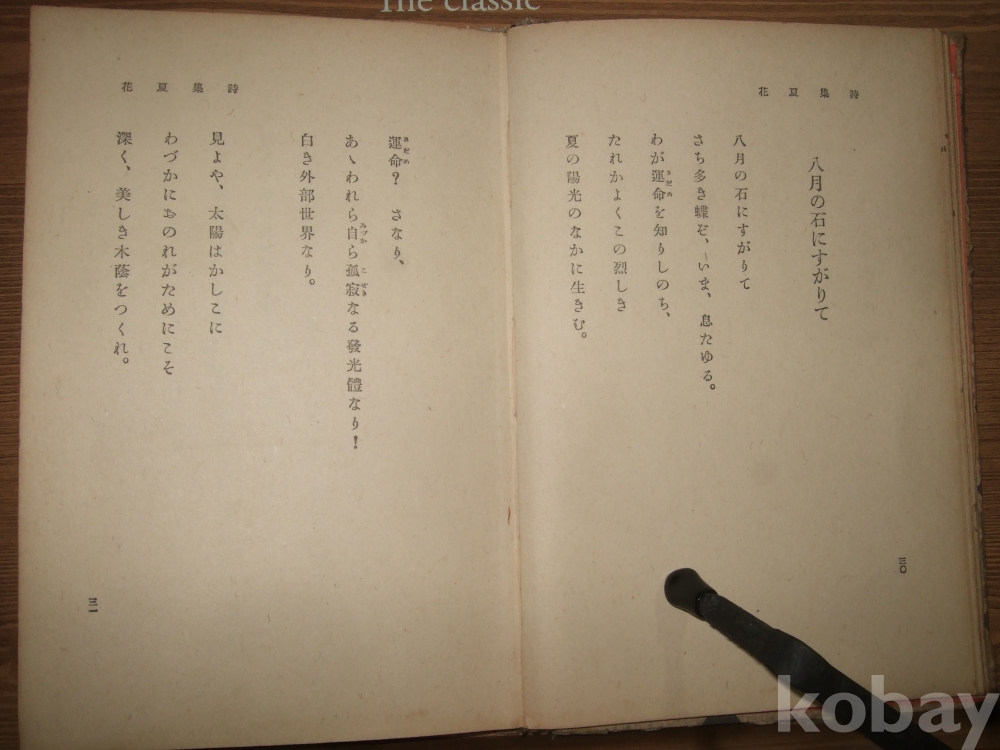 The classic
詩集夏花
八月の石にすがりて
八月の石にすがりて
さち多き蝶ぞ、いま、息たゆる。
わが運命を知りしのち、
さだめ
たれかよくこの烈しき
夏の陽光のなかに生きむ。
三〇
詩集夏花
運命? さなり、
さだめ
あゝわれら自ら孤寂なる發光體なり!
みづか
こせき
白き外部世界なり。
見よや、太陽はかしこに
わづかにおのれがためにこそ
深く、美しき木蔭をつくれ。
三一
kobay